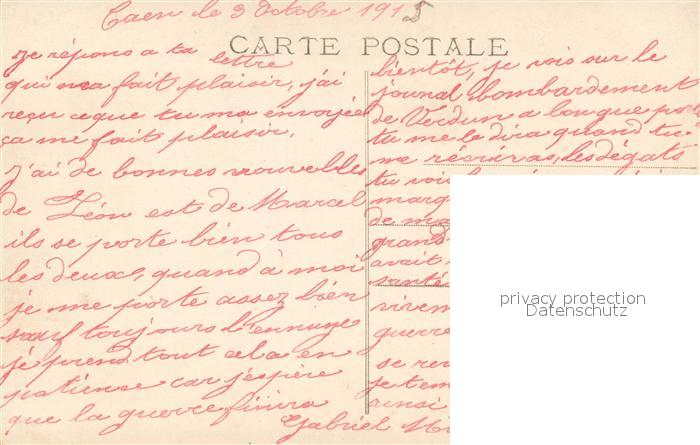 Caen le 3 Octobre 1915
CARTE POSTALE
Je répons a ta lettre
qui ma fait plaisir, j'ai
reçu ce que tu ma envoyée
ça me fait plaisir.
J'ai de bonnes nouvelles
de Léon est de Marcel
ils se porte bien tous
les deux, quand à moi
je me porte assez bien
sauf toujours l'ennuye
je prend tout cela en
patience car j'espère
que la guerre finira
bientôt, je vois sur le
journal bombardement
de Verdun a longue porte
tu me le dira quand tu
me récriras, les dégats
tu vois
marq
de ma
grand
avait
santé
vivem
guerre
se re
je t'em
ainsi
Gabriel
privacy protection
Datenschutz